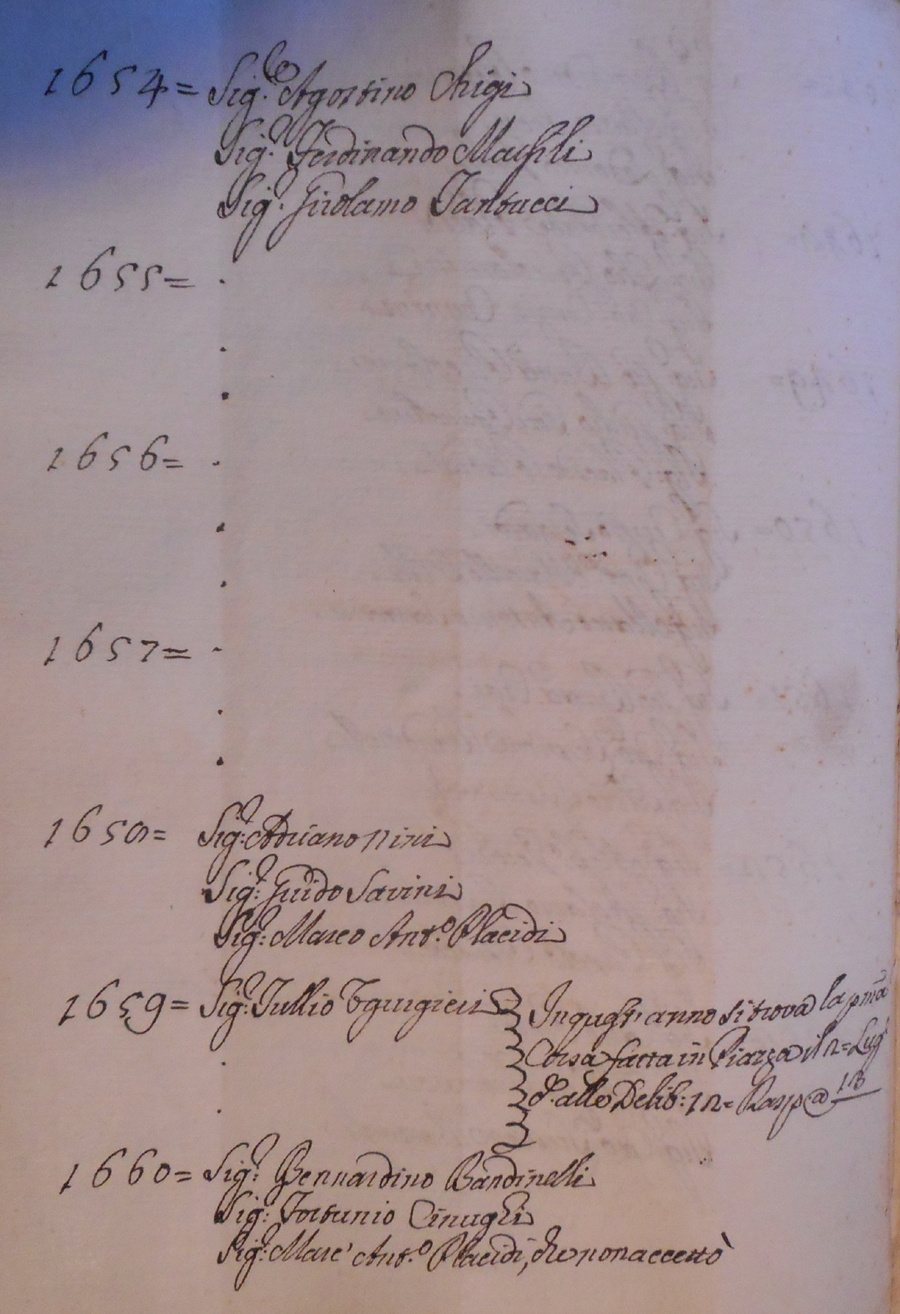 1654= Sig.r Agostino Chigi
Sig.r Ferdinando Marsili
Sig.r Girolamo Tantucci
1655= .
.
.
1656= .
.
.
1657= .
.
.
1658= Sig.r Adriano Nini
Sig.r Guido Savini
Sig.r Marco Ant.o Placidi
1659= Sig.r Tullio Tgurgieri
In quest' anno si trova la p.ma
Corsa fatta in Piazza il 2= Lug.
alle Delib:
.
.
1660= Sig.r Bernardino Bandinelli
Sig.r Fortunio Cinughi
Sig.r Marc' Ant.o Placidi, che non accettò